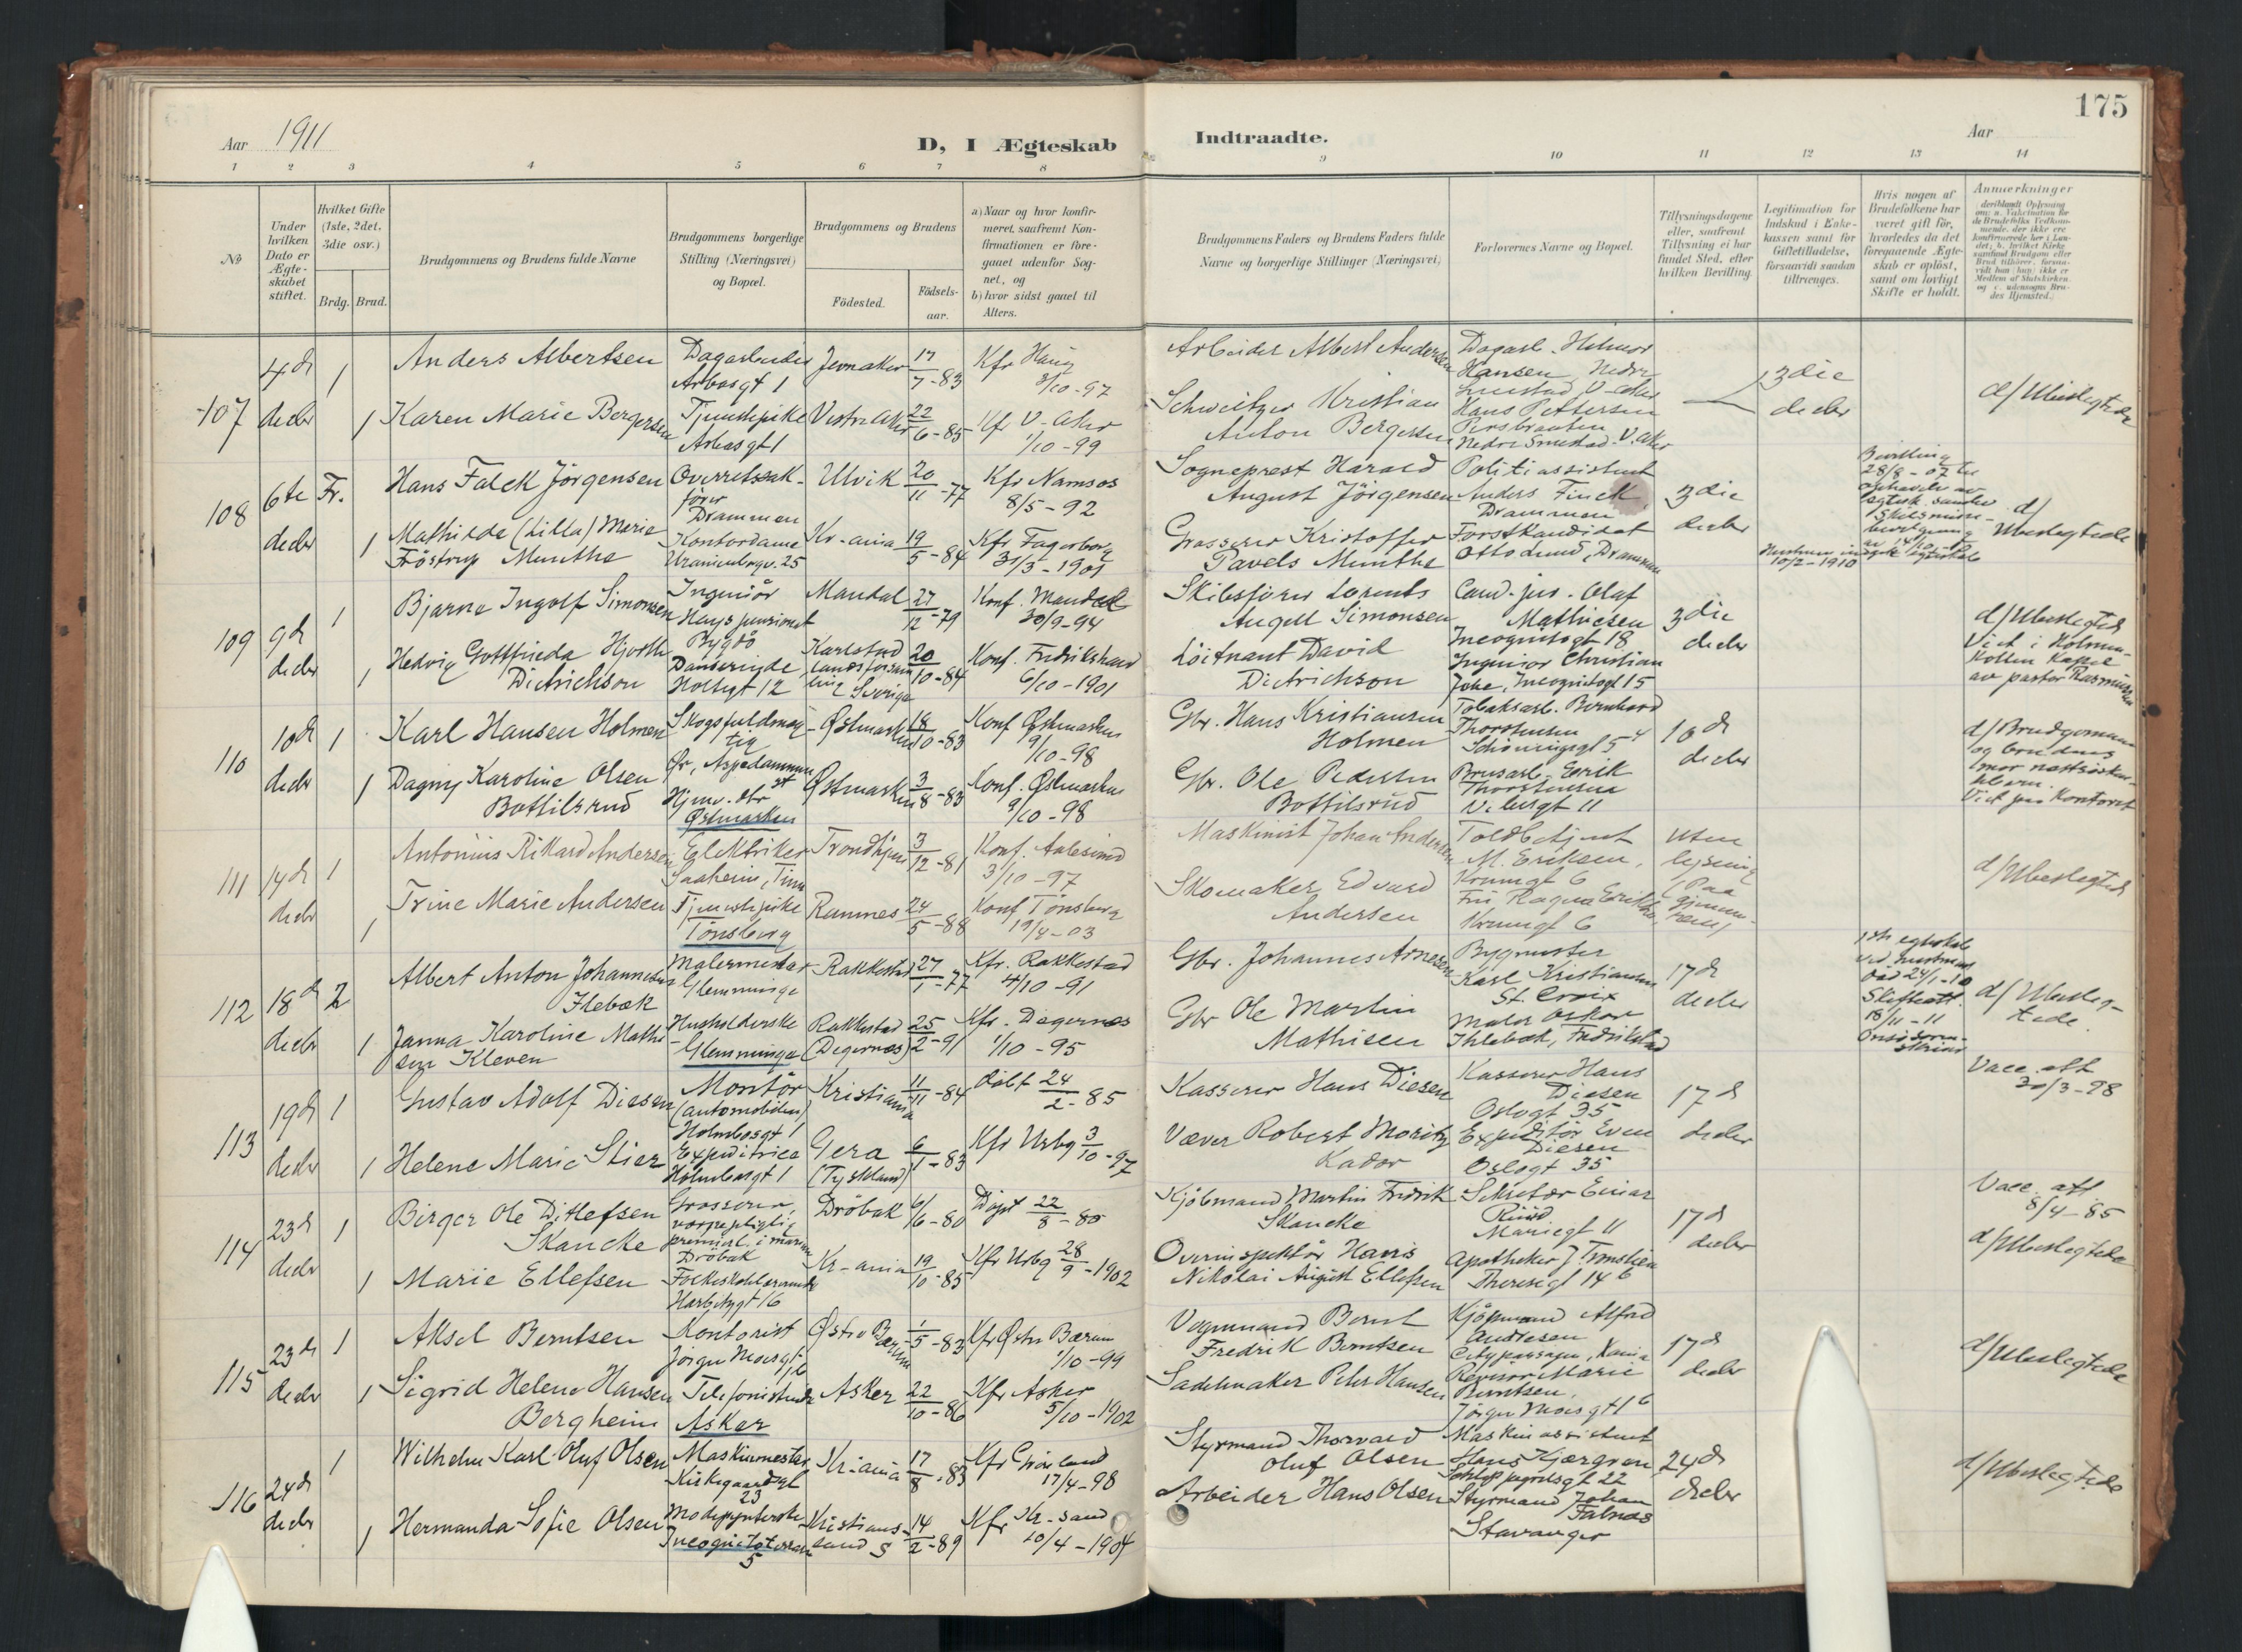 175
Aar 1911
D, I Ægteskab Indtraadte.
Aar
1 2 3 4 5 6 7 8 9 10 11 12 13 14
No
Under hvilken Dato er Ægteskabet stiftet.
Hvilket Gifte (1ste, 2det, 3die osv.)
Brdg. Brud.
Brudgommens og Brudens fulde Navne
Brudgommens borgerlige Stilling (Næringsvei) og Bopæl.
Brudgommens og Brudens
Fødested.
Fødsels-aar.
a) Naar og hvor konfirmeret, saafremt Konfirmationen er foregaaet udenfor Sognet, og
b) hvor sidst gaael til Alters.
Brudgommens Faders og Brudens Faders fulde Navne og borgerlige Stillinger (Næringsvei)
Forlovernes Navne og Bopæl.
Tillysningsdagene eller, saafremt Tillysning ei har fundet Sted, efter hvilken Bevilling.
Legitimation for Indskud i Enkekassen samt for Giftetilladelse, forsaavidt saadan tiltrænges.
Hvis nogen af Brudefolkene har været gift før, hvorledes da det foregaaende Ægteskab er opløst, samt om lovligt Skifte er holdt.
Anmærkninger
107
4de decbr
1
Anders Albertsen
Dagarbeider
Arbosgt 1
Jevnaker
17/7-83
Kfr Haug
3/10-97
Arbeider Albert Andersen
Dagarb. Hilmar
Hansen, Nedre
Smestad V-aker
3die
decbr
d/ Ubeslegtede
1
Karen Marie Bergersen
Tjenestepike
Arbosgt 1
Vestre Aker
22/6-85
Kfr V-Aker
1/10-99
Schweitzer Kristian
Anton Bergersen
Hans Pettersen
Persbraaten
Nedre Smestad. V. Aker
108
6te decbr
Fr.
Hans Falck Jörgensen
Overretssakfører
Drammen
Ulvik
20/11-77
Kfr Namsos
8/5-92
Sogneprest Harald
August Jörgensen
Politiassistent
Anders Finck
Drammen
3die
decbr
Bevilling
28/8-07
d/
Ubeslegtede
1
Mathilde (Lilla) Marie
Fröstrup Munthe
Kontordame
Uranienborgv. 25
Kr-ania
19/5-84
Kfr Fagerborg
31/5-1901
Grosserer Kristoffer
Pavels Munthe
Forstkandidat
Otto Lund, Drammen
10/2-1910
109
9de decbr
1
Bjarne Ingolf Simonsen
Ingeniör
Hays pensionat
Bygdö
Mandal
27/12-79
Konf. Mandal
30/9-94
Skibsfører Lorents
Angell Simonsen
Cand. jur. Olaf
Mathiesen
Incognitogt 18
3die
decbr
d/ Ubeslegtede
Viet i Holmenkollen Kapel
av pastor Rasmussen
1
Hedvig Gottfrieda Hjorth
Dietrichson
Danserinde
Holtegt 12
Karlstad
landsforsamling Sverige
20/10-84
Konf. Fredrikshald
6/10-1901
Löitnant David
Dietrichson
Ingeniør Christian
Incognitogt 15
110
10de decbr
1
Karl Hansen Holmen
Skogsfuldmægtig
Aspedammen st
Østmarken
18/10-83
Konf Østmarken
9/10-98
Gbr. Hans Kristiansen
Holmen
Tobaksarb. Bernhard
Thorstensen
Schøningsgt 5
10de
decbr
d/ Brudgommen
og brudens
mor næstsøskenbarn.
Viet paa Kontoret
1
Dagny Karoline Olsen
Bottilsrud
Hjemv. dtr
Østmarken
Østmarken
3/8-83
Konf. Østmarken
9/10-98
Gbr. Ole Pedersen
Bottilsrud
Brusarb. Eerik
Thorstensen
Vibesgt 11
111
14de decbr
1
Antonius Rikard Andersen
Elektriker
Saaheim, Tinn
Trondhjem
3/12-81
Konf. Aalesund
3/10-97
Maskinist Johan Andersen
Toldbetjent
M. Eriksen,
Krumgt 6
Uten
lysning
d/ Ubeslegtede
1
Trine Marie Andersen
Tjenestepike
Tönsberg
Ramnes
24/5-88
Konf Tönsberg
19/4-03
Skomaker Edvard
Andersen
Fru Ragna Eriksen,
Krumgt 6
112
18de decbr
2
Albert Anton Johannesen
Ilebæk
Malermester
Glemminge
Rakkestad
27/1-77
Kfr. Rakkestad
4/10-91
Gbr. Johannes Arnesen
Bygmester
Karl Kristiansen
St. Croix
17de
decbr
24/1-10
Skifteatt.
18/11-11
d/ Ubeslegtede.
1
Janna Karoline Mathisen Kleven
Husholderske
Glemminge
Rakkestad
(Degernes)
25/2-91
Kfr. Degernes
1/10-95
Gbr Ole Martin
Mathisen
Maler Oskar
Ihlebæk, Fredrikstad
113
19de decbr
1
Gustav Adolf Diesen
Montör
(automobiler)
Holmbosgt 1
Kristiania
11/11-84
døbt 24/2-85
Kasserer Hans Diesen
Kasserer Hans
Diesen
Oslogt 35
17de
decbr
Vacc. att
30/3-98
1
Helene Marie Stier
Expeditrice
Holmbosgt 1
Gera
(Tyskland)
6/1-83
Kfr Urbg 3/10-97
Væver Robert Moritz
Kador
Expeditör Even
Diesen
Oslogt 35
114
23de decbr
1
Birger Ole Ditlefsen
Skancke
Grosserer,
vernepligtig
premierl. i marinen
Dröbak
Dröbak
6/6-80
Döpt 22/8-80
Kjöbmand Martin Fredrik
Skancke
Sekretær Einar
Ruud
Mariegt 11
17de
decbr
Vacc. att
8/4-85
d/ Ubeslegtede
1
Marie Ellefsen
Folkeskolelærerinde
Harbitzgt 16
Kr-ania
19/10-85
Kfr Urbg 28/9-1902
Overinspektør Hans
Nikolai August Ellefsen
Theresegt 14 b
115
23de decbr
1
Aksel Berntsen
Kontorist
Jörgen Moesgt
Østre Bærum
1/5-83
Kfr Østre Bærum
1/10-99
Vognmand Bernt
Fredrik Berntsen
Kjøpmand Alfred
Andresen
Citypassagen, Kania
17de
decbr
d/ Ubeslegtede
1
Sigrid Helene Hansen
Bergheim
Telefonistinde
Asker
Asker
22/10-86
Kfr Asker
5/10-1902
Sadelmaker Peter Hansen
Revisor Marie
Berntsen,
Jörgen Moes gt 1 b
116
24de decbr
1
Wilhelm Karl Oluf Olsen
Maskinmester
Kirkegaardsgt
23
Kr-ania
17/8-83
Kfr Grönland
17/4-98
Styrmand Thorvald
Oluf Olsen
Maskinassistent
Hans Kjærgren
22
24de
decbr
d/ Ubeslegtede
1
Hermanda Sofie Olsen
Modepynterske
Incognitoterrasse
5
Kristiansand S
14/2-89
Kfr Kr-sand
10/4-1904
Arbeider Hans Olsen
Styrmand Johan
Falnes
Stavanger